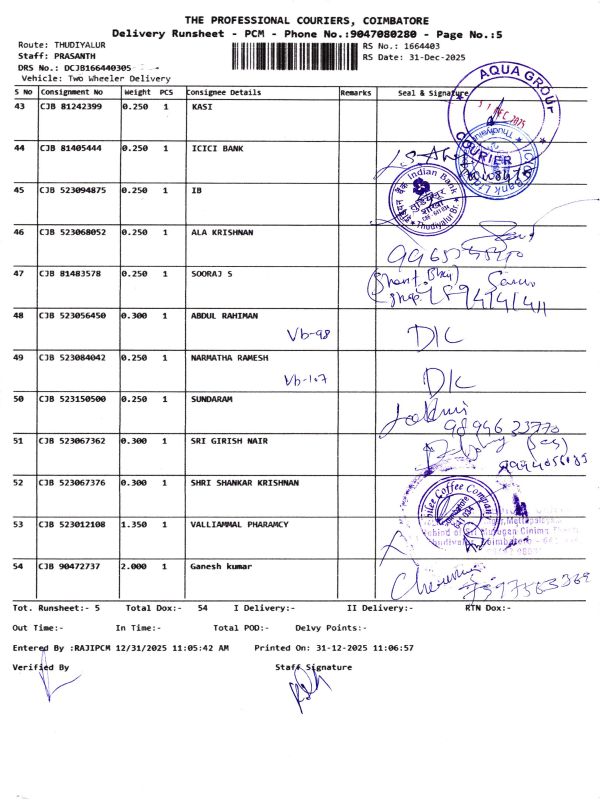 THE PROFESSIONAL COURIERS, COIMBATORE
Delivery Runsheet - PCM - Phone No.:9047080280 - Page No.:5
Route: THUDIYALUR
RS No.: 1664403
Staff: PRASANTH
RS Date: 31-Dec-2025
DRS No.: DCJB166440305
Vehicle: Two Wheeler Delivery
S No Consignment No Weight PCS Consignee Details Remarks Seal & Signature
43 CJB 81242399 0.250 1 KASI
AQUA GROUP
COURIER
44 CJB 81405444 0.250 1 ICICI BANK
45 CJB 523094875 0.250 1 IB
Indian Bank
Thudiyalur Br.
46 CJB 523068052 0.250 1 ALA KRISHNAN
47 CJB 81483578 0.250 1 SOORAJ S
48 CJB 523056450 0.300 1 ABDUL RAHIMAN
Vb-98 D/C
49 CJB 523084042 0.250 1 NARMATHA RAMESH
Vb-107 D/C
50 CJB 523150500 0.250 1 SUNDARAM
98946 23770
51 CJB 523067362 0.300 1 SRI GIRISH NAIR
52 CJB 523067376 0.300 1 SHRI SHANKAR KRISHNAN
Coffee Company
53 CJB 523012108 1.350 1 VALLIAMMAL PHARAMCY
54 CJB 90472737 2.000 1 Ganesh kumar
Tot. Runsheet:- 5 Total Dox:- 54 I Delivery:- II Delivery:- RTN Dox:-
Out Time:- In Time:- Total POD:- Delvy Points:-
Entered By :RAJIPCM 12/31/2025 11:05:42 AM Printed On: 31-12-2025 11:06:57
Verified By Staff Signature